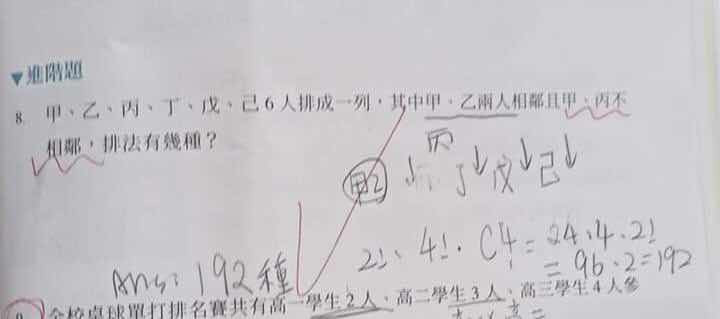 ▼進階題
8. 甲、乙、丙、丁、戊、己6人排成一列，其中甲、乙兩人相鄰且甲、丙不
相鄰，排法有幾種？
丙
甲乙 ↓ 丁↓戊↓己↓
2!·4!·C4 1 = 24·4·2!
= 96·2=192
Ans: 192種
9. 全校桌球單打排名賽共有高一學生2人、高二學生3人、高三學生4人參